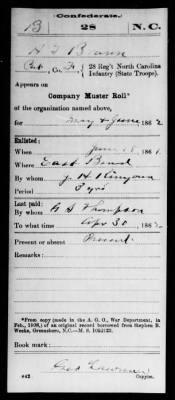 Confederate.
B 28 N.C.
H T Bovin
Pvt, Co. F, 28 Reg't North Carolina
Infantry (State Troops).
Appears on
Company Muster Roll*
of the organization named above,
for May & June, 1862
Enlisted:
When June 18, 1861
Where East Bend
By whom J. H. Kinyoun
Period 3 yrs
Last paid:
By whom G S Thompson
To what time Apr 30, 1862
Present or absent Present
Remarks:
*From copy (made in the A. G. O., War Department, in
Feb., 1908,) of an original record borrowed from Stephen B.
Weeks, Greensboro, N.C.—M. S.
Book mark:
Copyist.